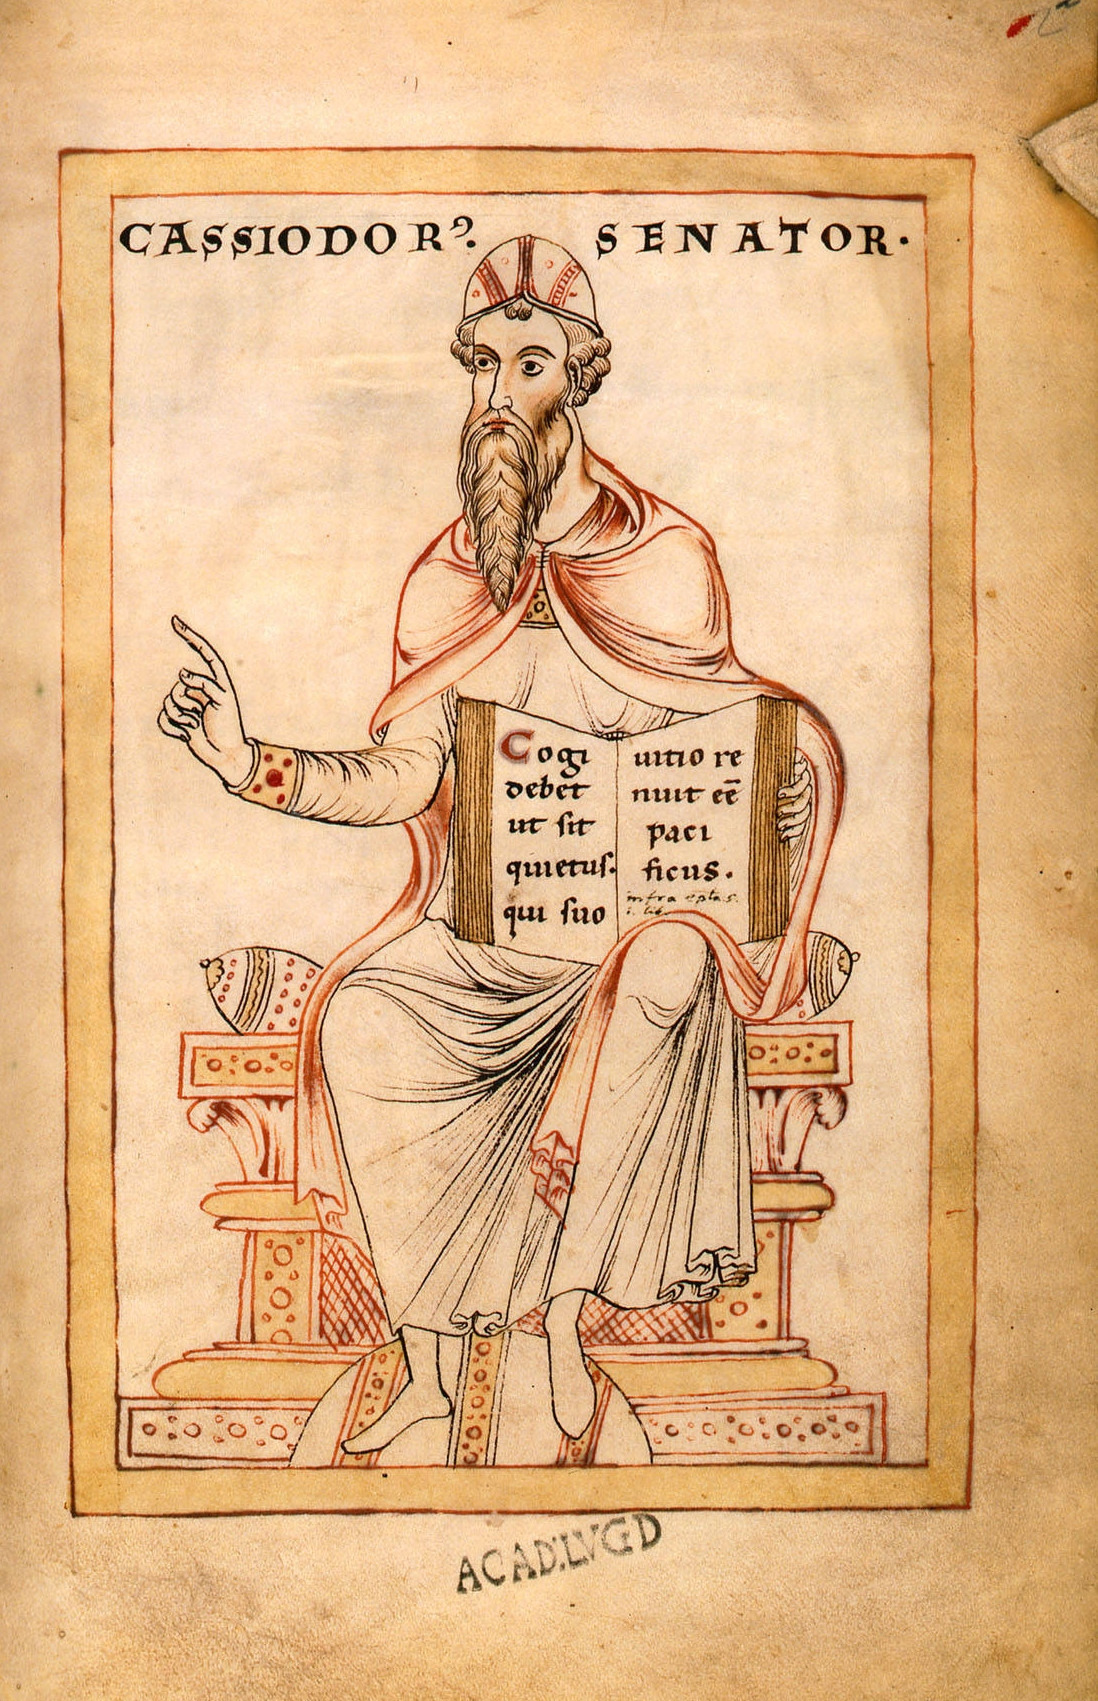 CASSIODORꝰ. SENATOR.
Cogi
debet
ut sit
quietus.
qui suo
uitio re
nuit eē
paci
ficus.
infra
i. lib.
ACAD.LVGD